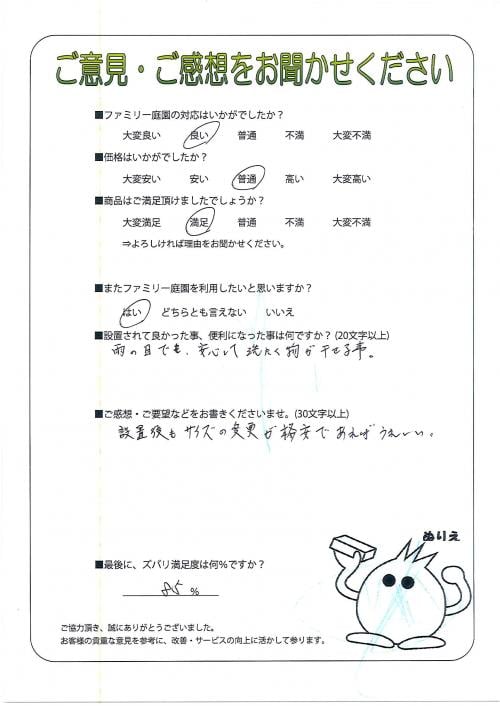 ご意見・ご感想をお聞かせください
■ファミリー庭園の対応はいかがでしたか？
大変良い 良い 普通 不満 大変不満
■価格はいかがでしたか？
大変安い 安い 普通 高い 大変高い
■商品はご満足頂けましたでしょうか？
大変満足 満足 普通 不満 大変不満
⇒よろしければ理由をお聞かせください。
■またファミリー庭園を利用したいと思いますか？
はい どちらとも言えない いいえ
■設置されて良かった事、便利になった事は何ですか？(20文字以上)
雨の日でも、安心して洗たく物が干せる事。
■ご感想・ご要望などをお書きくださいませ。(30文字以上)
設置後もサイズの変更が格安であればうれしい。
ぬりえ
■最後に、ズバリ満足度は何%ですか？
%
ご協力頂き、誠にありがとうございました。
お客様の貴重な意見を参考に、改善・サービスの向上に活かして参ります。